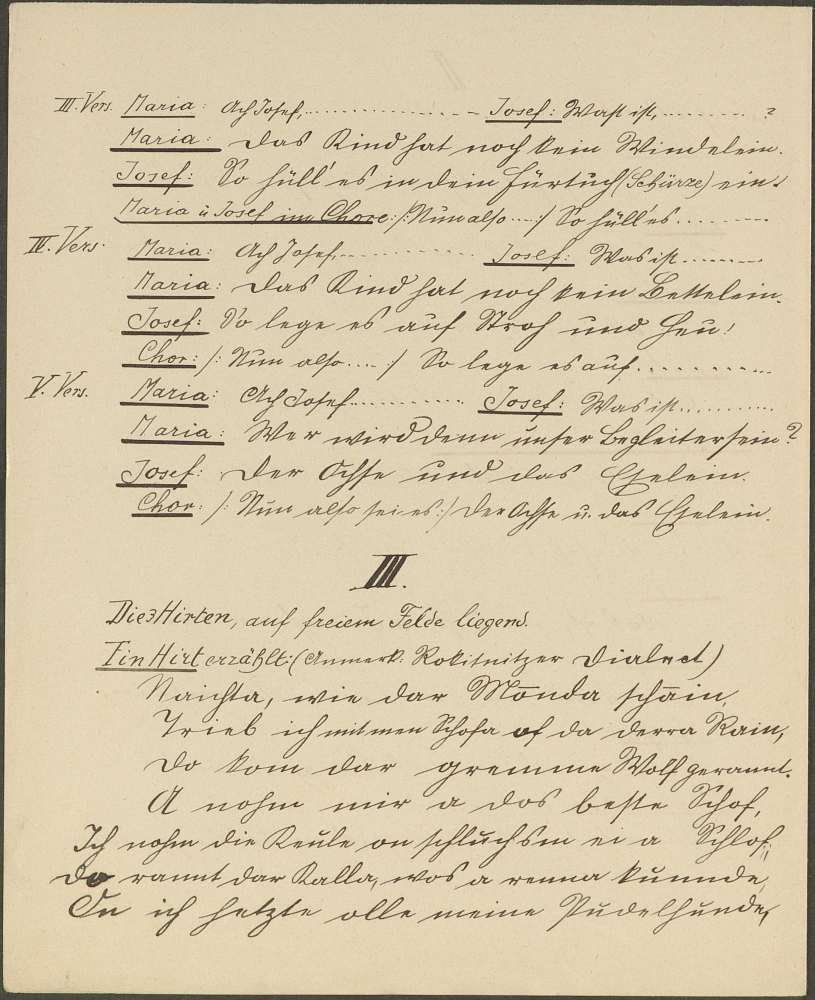 III. Vers. Maria: Ach Josef, .......... Josef: Was ist, .......... ?
Maria: Das Kind hat noch kein Windelein.
Josef: So hüll' es in dein Fürtuch (Schürze) ein!
Maria u Josef im Chore: /: Nun also .... :/ So hüll' es ........
IV. Vers: Maria: Ach Josef, .......... Josef: Was ist ........
Maria: Das Kind hat noch kein Bettelein.
Josef: So lege es auf Stroh und Heu!
Chor: /: Nun also .... :/ So lege es auf ..........
V. Vers. Maria: Ach Josef .......... Josef: Was ist ..........
Maria: Wer wird denn unser Begleiter sein?
Josef: Der Ochse und das Eselein.
Chor: /: Nun also sei es :/ Der Ochse u. das Eselein.
III.
Die 3 Hirten, auf freiem Felde liegend.
Ein Hirt erzählt: (Anmerk: Rokitnitzer Dialect)
Naichta, wie dar Mōnda schain,
Trieb ich mit men Schofa of da derra Rain,
Do kom dar gremme Wolf gerannt.
A nohm mir a dos beste Schof,
Ich nohm die Keule on schluchsm ei a Schlof;
Do rannt dar Kalla, wos a renna kunnde,
On ich hetzte olle meine Pudelhunde,